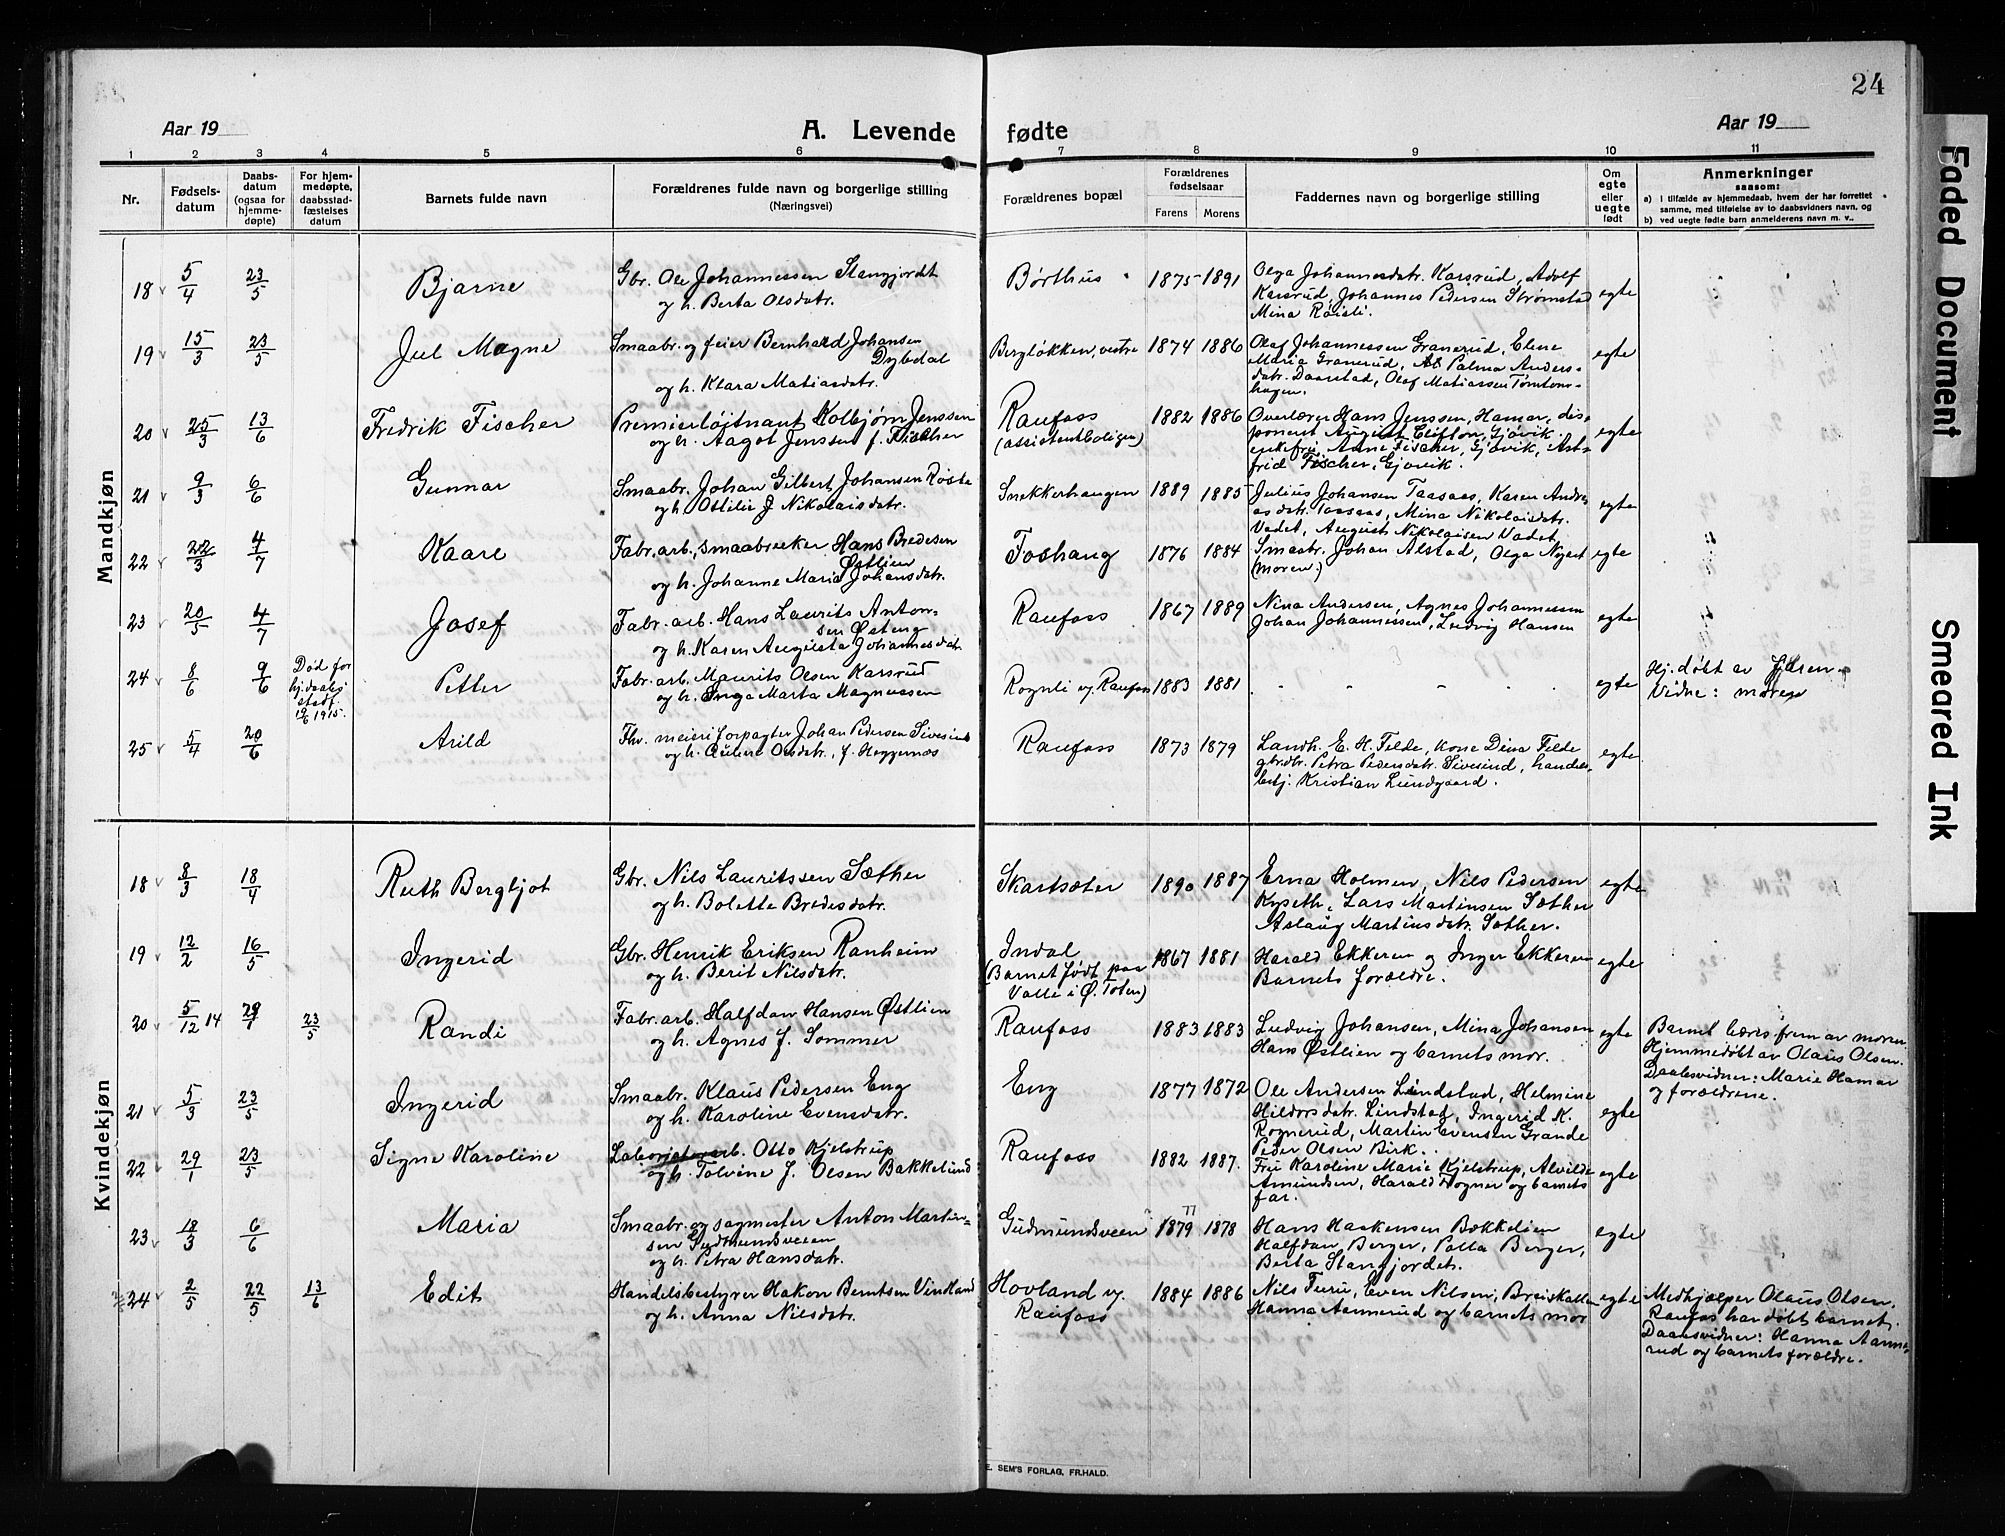 24
Aar 19
A. Levende fødte
Aar 19
1 2 3 4 5 6 7 8 9 10 11
Nr.
Fødsels-
datum
Daabs-
datum
(ogsaa for
hjemme-
døpte)
For hjem-
medøpte,
daabsstad-
fæstelses
datum
Barnets fulde navn
Forældrenes fulde navn og borgerlige stilling
(Næringsvei)
Forældrenes bopæl
Forældrenes
fødselsaar
Farens Morens
Faddernes navn og borgerlige stilling
Om
egte
eller
uegte
født
Anmerkninger
saasom:
a) i tilfælde av hjemmedaab, hvem der har forrettet
samme, med tilføielse av to daabsvidners navn, og
b) ved uegte fødte barn anmelderens navn m. v..
Mandkjøn
18 5/4 23/5 Bjarne
Gbr. Ole Johannessen Stangjordet
og h. Berta Olsdatr.
Børthus 1875 1891
Olga Johannesdatr. Karsrud, Adolf
Karsrud, Johannes Pedersen Strømstad
Mina Røisli.
egte
19 15/3 23/5 Jul Magne
Smaabr. og feier Bernhard Johansen
Dybedal
og h. Klara Matiasdatr.
Bergløkken, vestre 1874 1886
Olaf Johannessen Granerud, Elene
Maria Granerud, Palma Anders-
datr. Daarstad, Olaf Matiassen Tømtom-
hagen.
egte
20 25/3 13/6 Fredrik Fischer
Premierløjtnant Kolbjørn Jenssen
og h. Aagot Jenssen f. Fischer
Raufoss
(assistentboligen)
1882 1886
Overlærer Hans Jenssen, Hamar, dis-
ponent August Clifton, Gjøvik.
enkefru Anne Fischer, Gjøvik, Ast-
frid Fischer, Gjøvik.
egte
21 9/3 6/6 Gunnar
Smaabr. Johan Gilbert Johansen Røste
og h. Ottilie J Nikolaisdatr.
Snekkerhaugen 1889 1885
Julius Johansen Taasaas, Karen Andre-
asdatr. Taasaas, Mina Nikolaisdatr.
Vadet, August Nikolaisen Vadet,
egte
22 22/3 4/7 Kaare
Fabr. arb., smaabruker Hans Bredesen
Østlien
og h. Johanne Maria Johansdatr.
Foshaug 1876 1884
Smaabr. Johan Alstad, Olga Nygard
(moren.)
egte
23 20/5 4/7 Josef
Fabr. arb. Hans Laurits Anton-
sen Østeng
og h. Karen Augusta Johannesdatr.
Raufoss 1867 1889
Nina Andersen, Agnes Johannessen
Johan Johannessen, Ludvig Hansen
egte
24 8/6 9/6
Død før
hj.daabs
stadf.
19/6 1915.
Petter
Fabr. arb. Maurits Olsen Karsrud
og h. Inga Marta Magnussen
Rognli og Raufoss 1883 1881
egte
Hj.døbt av
Vidne: moren
25 5/4 20/6 Arild
Fhv. meieriforpagter Johan Pedersen Sivesind
og h. Oline Olsdatr., f. Heggernes
Raufoss 1873 1879
Landh. E. H. Felde, kone Dina Felde
gbr.dtr. Petra Pedersdatr. Sivesind, handels-
betj. Kristian Lundgaard.
egte
Kvindekjøn
18 8/3 18/4 Ruth Bergljot
Gbr. Nils Lauritssen Sæther
og h. Bolette Bredesdatr.
Skartsæter 1890 1887
Erna Holmen, Nils Pedersen
Kyseth, Lars Martinsen Sæther
Aslaug Martinsdatr. Sæther.
egte
19 12/2 16/5 Ingerid
Gbr. Henrik Eriksen Ranheim
og h. Berit Nilsdatr.
Indal
(Barnet født paa
Valle i Ø. Toten)
1867 1881
Harald Ekkeren og Inger Ekkeren
Barnets forældre.
egte
20 5/12 14 29/1 23/5 Randi
Fabr. arb. Halfdan Hansen Østlien
og h. Agnes f. Sommer
Raufoss 1883 1883
Ludvig Johansen, Mina Johansen
Hans Østlien og barnets mor.
egte
Barnet bæres frem av moren
Hjemmedøbt av Olaus Olsen.
Daabsvidner: Marie Hamar
og forældrene.
21 5/3 23/5 Ingerid
Smaabr. Klaus Pedersen Eng
og h. Karoline Evensdatr.
Eng 1877 1872
Ole Andersen Lindstad, Helmine
Hildorsdatr. Lindstad, Ingerid K.
Rognerud, Martin Evensen Grande
Peder Olsen Birk.
egte
22 29/1 23/5 Signe Karoline
Laboriatorarb. Otto Kjelstrup
og h. Tolvine f. Olsen Bakkelund
Raufoss 1882 1887.
Fru Karoline Marie Kjelstrup, Alvilde
Amundsen, Harald Wogner og barnets
far.
egte
23 18/3 6/6 Maria
Smaabr. og sagmester Anton Martin-
sen Gudmundsveen
og h. Petra Hansdatr.
Gudmundsveen 1879 77 1878
Hans Haakensen Bækkelien
Halfdan Berger, Palla Berger,
Berta Stangjordet.
egte
24 2/5 22/5 13/6 Edit
Handelsbestyrer Hakon Berntsen Vindland
og h. Anna Nilsdatr.
Hovland og
Raufoss
1884 1886
Nils Furu, Even Nilsen, Breiskallen
Hanna Aannerud og barnets mor
egte
Medhjælper Olaus Olsen,
Raufoss har døbt barnet.
Daabsvidner: Hanna Aanne-
rud og barnets forældre.
E. SEM'S FORLAG, FR.HALD.
Faded Document
Smeared Ink